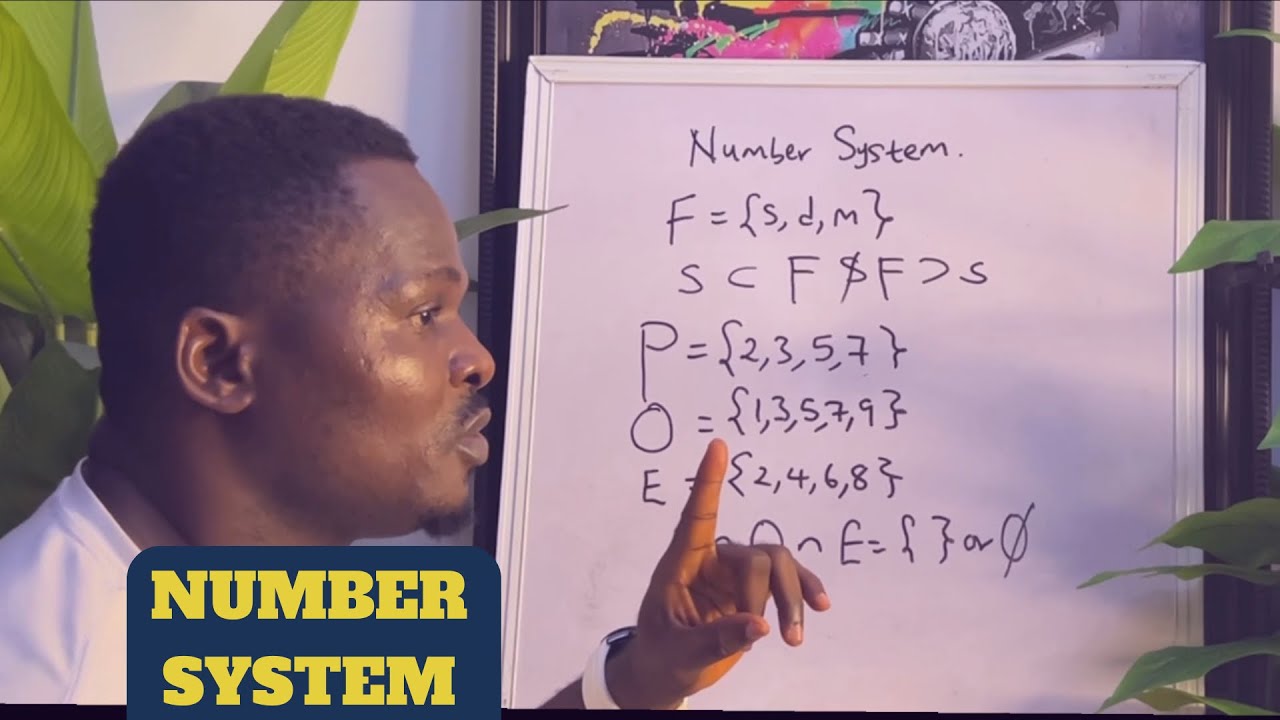 Number System.
F = {s, d, m}
s ⊂ F $ F ⊃ s
P = {2, 3, 5, 7}
O = {1, 3, 5, 7, 9}
E = {2, 4, 6, 8}
∩ O ∩ E = { } or ∅
NUMBER
SYSTEM